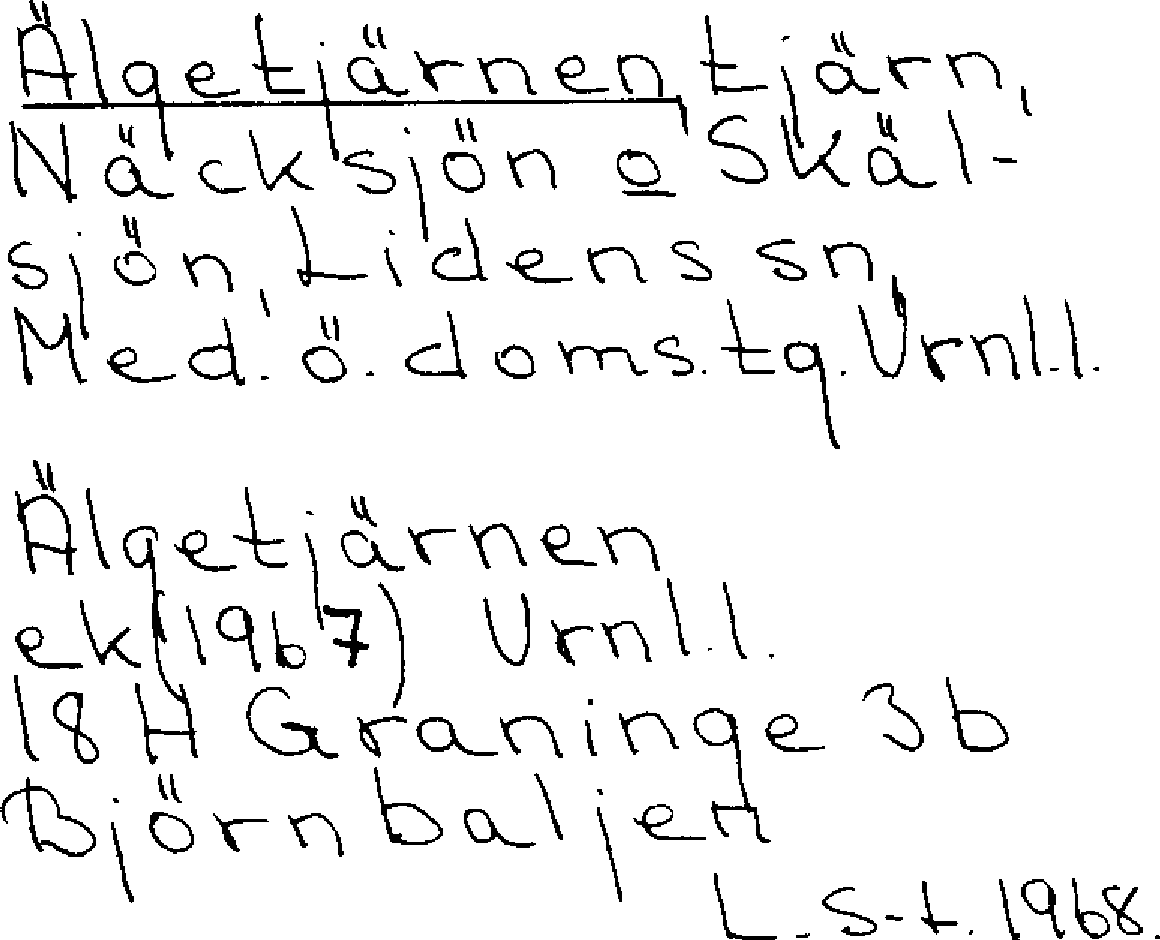 Älgetjärnen, tjärn,
Näcksjön o Skäl-
sjön, Lidens sn,
Med. ö. doms.tg. Vrnl.l.
Älgetjärnen
ek (1967) Vrnl.l.
18H Graninge 3b
Björnbaljen
L. S-t. 1968.